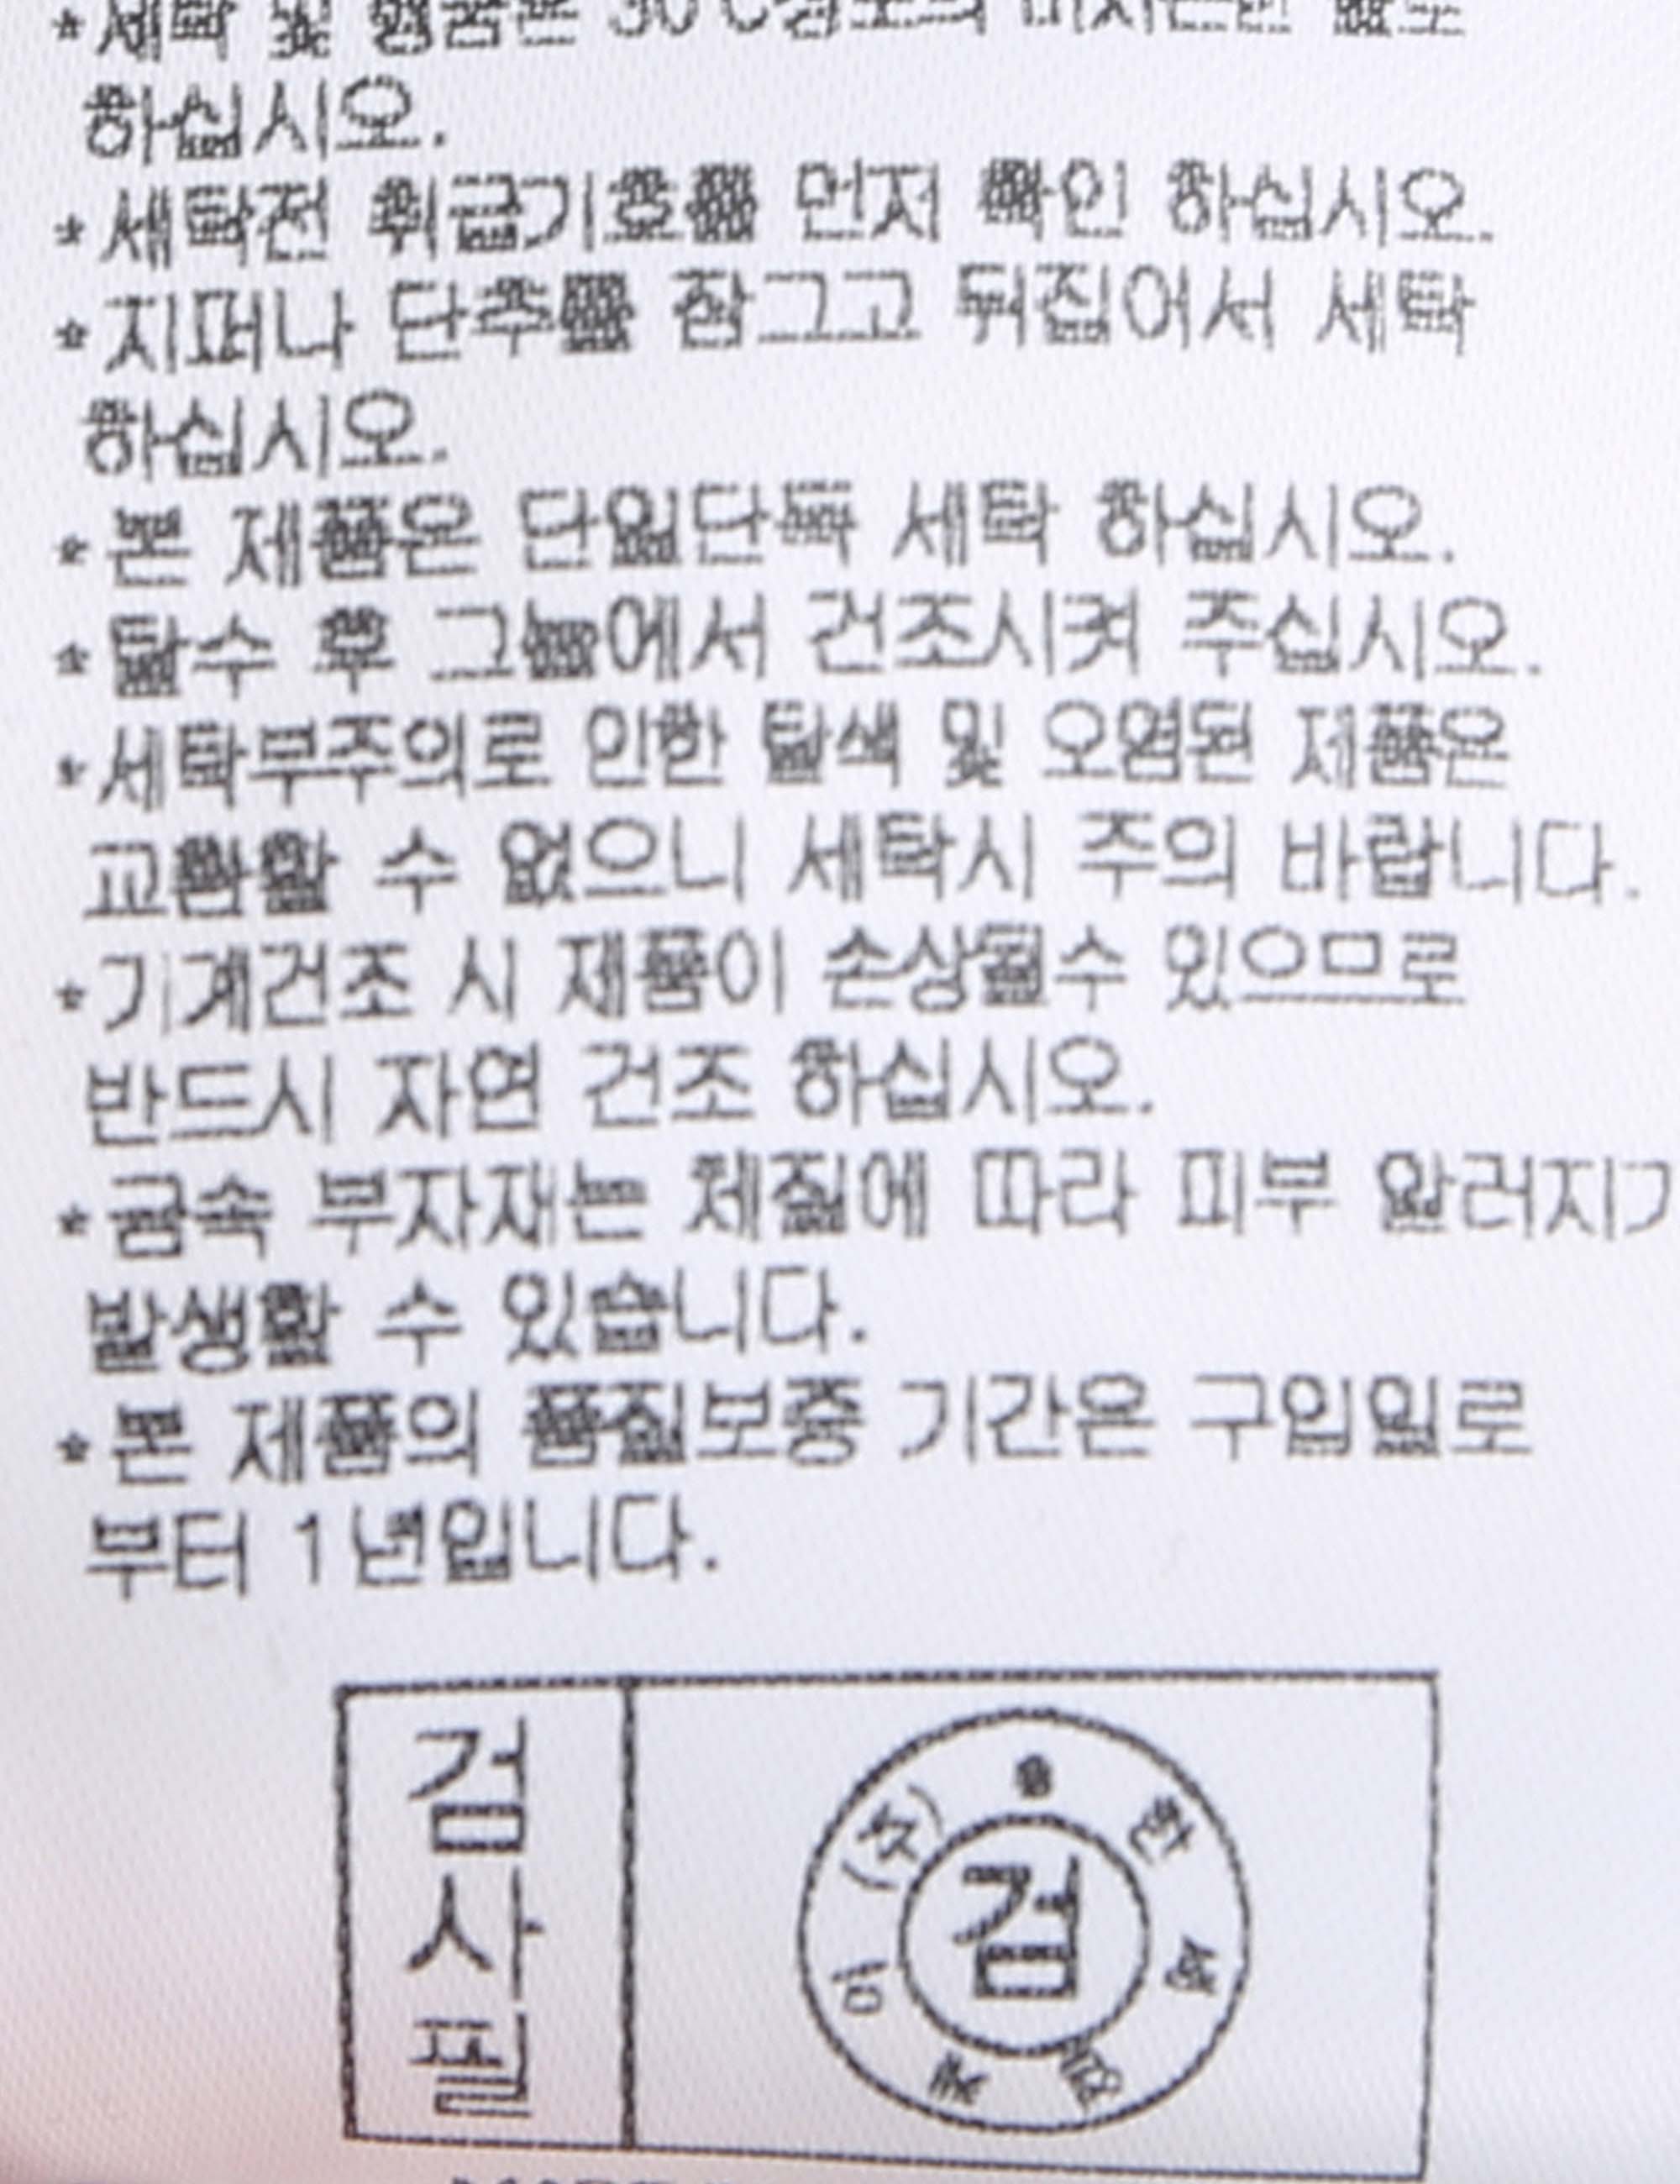 *세탁 및 헹굼은 30℃정도의 미지근한 물로
하십시오.
*세탁전 취급기호를 먼저 확인 하십시오.
*지퍼나 단추를 잠그고 뒤집어서 세탁
하십시오.
*본 제품은 단일단독 세탁 하십시오.
*탈수 후 그늘에서 건조시켜 주십시오.
*세탁부주의로 인한 탈색 및 오염된 제품은
교환할 수 없으니 세탁시 주의 바랍니다.
*기계건조 시 제품이 손상될수 있으므로
반드시 자연 건조 하십시오.
*금속 부자재는 체질에 따라 피부 알러지가
발생할 수 있습니다.
*본 제품의 품질보증 기간은 구입일로
부터 1년입니다.
검사필
검